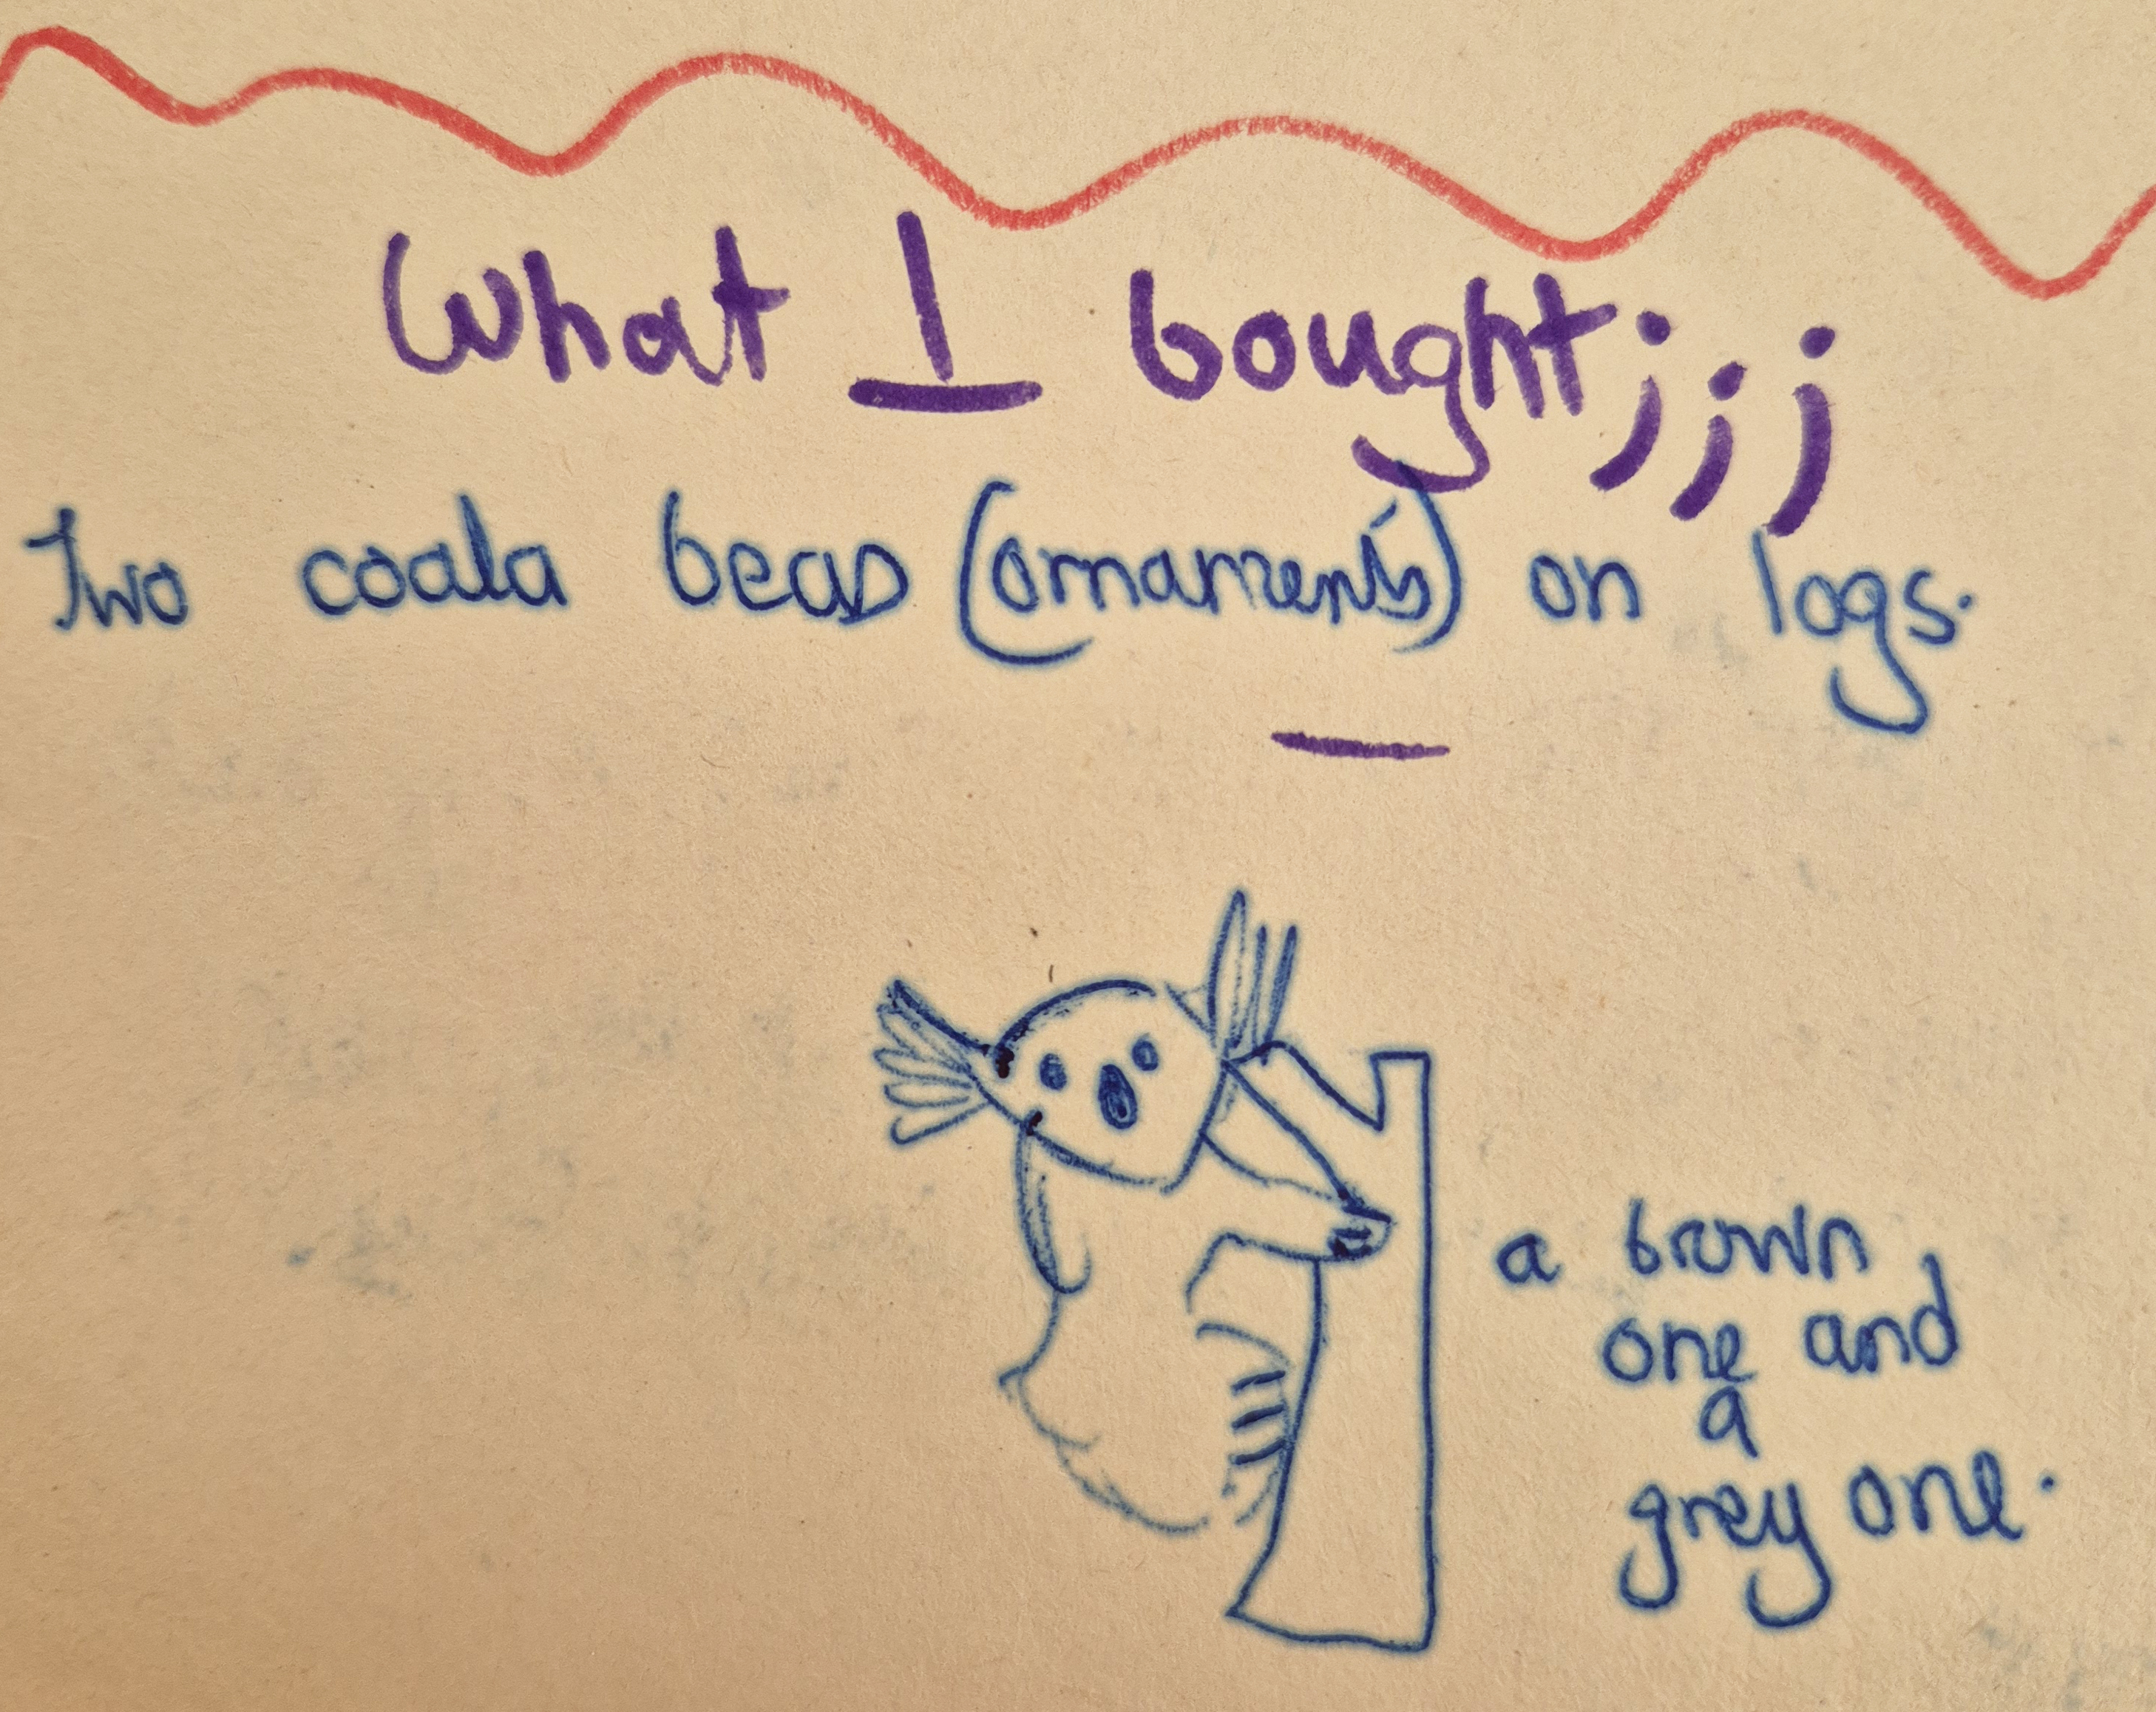 What I bought;;;
Two coala beas (ornaments) on logs.
a brown
one and
a
grey one.